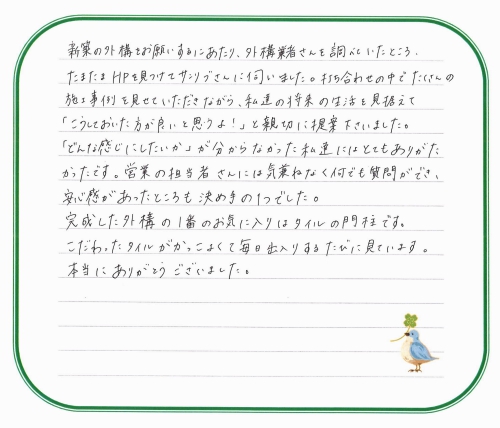 新築の外構をお願いするにあたり、外構業者さんを調べていたところ、
たまたまHPを見つけてサンリブさんに伺いました。打ち合わせの中でたくさんの
施工事例を見せていただきながら、私達の将来の生活を見据えて
「こうしておいた方が良いと思うよ！」と親切に提案下さいました。
「どんな感じにしたいか」が分からなかった私達にはとてもありがた
かったです。営業の担当者さんには気兼ねなく何でも質問ができ、
安心感があったところも決め手の1つでした。
完成した外構の1番のお気に入りはタイルの門柱です。
こだわったタイルがかっこよくて毎日出入りするたびに見ています。
本当にありがとうございました。